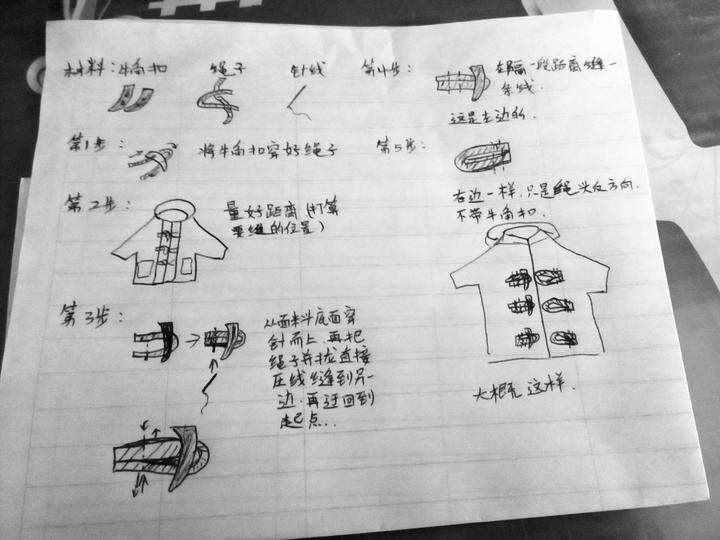 材料：牛角扣 绳子 针线
第1步：
将牛角扣穿好绳子
第2步：
量好距离(打算
要缝的位置)
第3步：
从面料底面穿
针而上,再把
绳子并拢直接
压线缝到另一
边,再迂回到
起点...
第4步：
每隔一段距离缝一
条线.
这是左边的.
第5步：
右边一样,只是绳头反方向.
不带牛角扣.
大概这样.